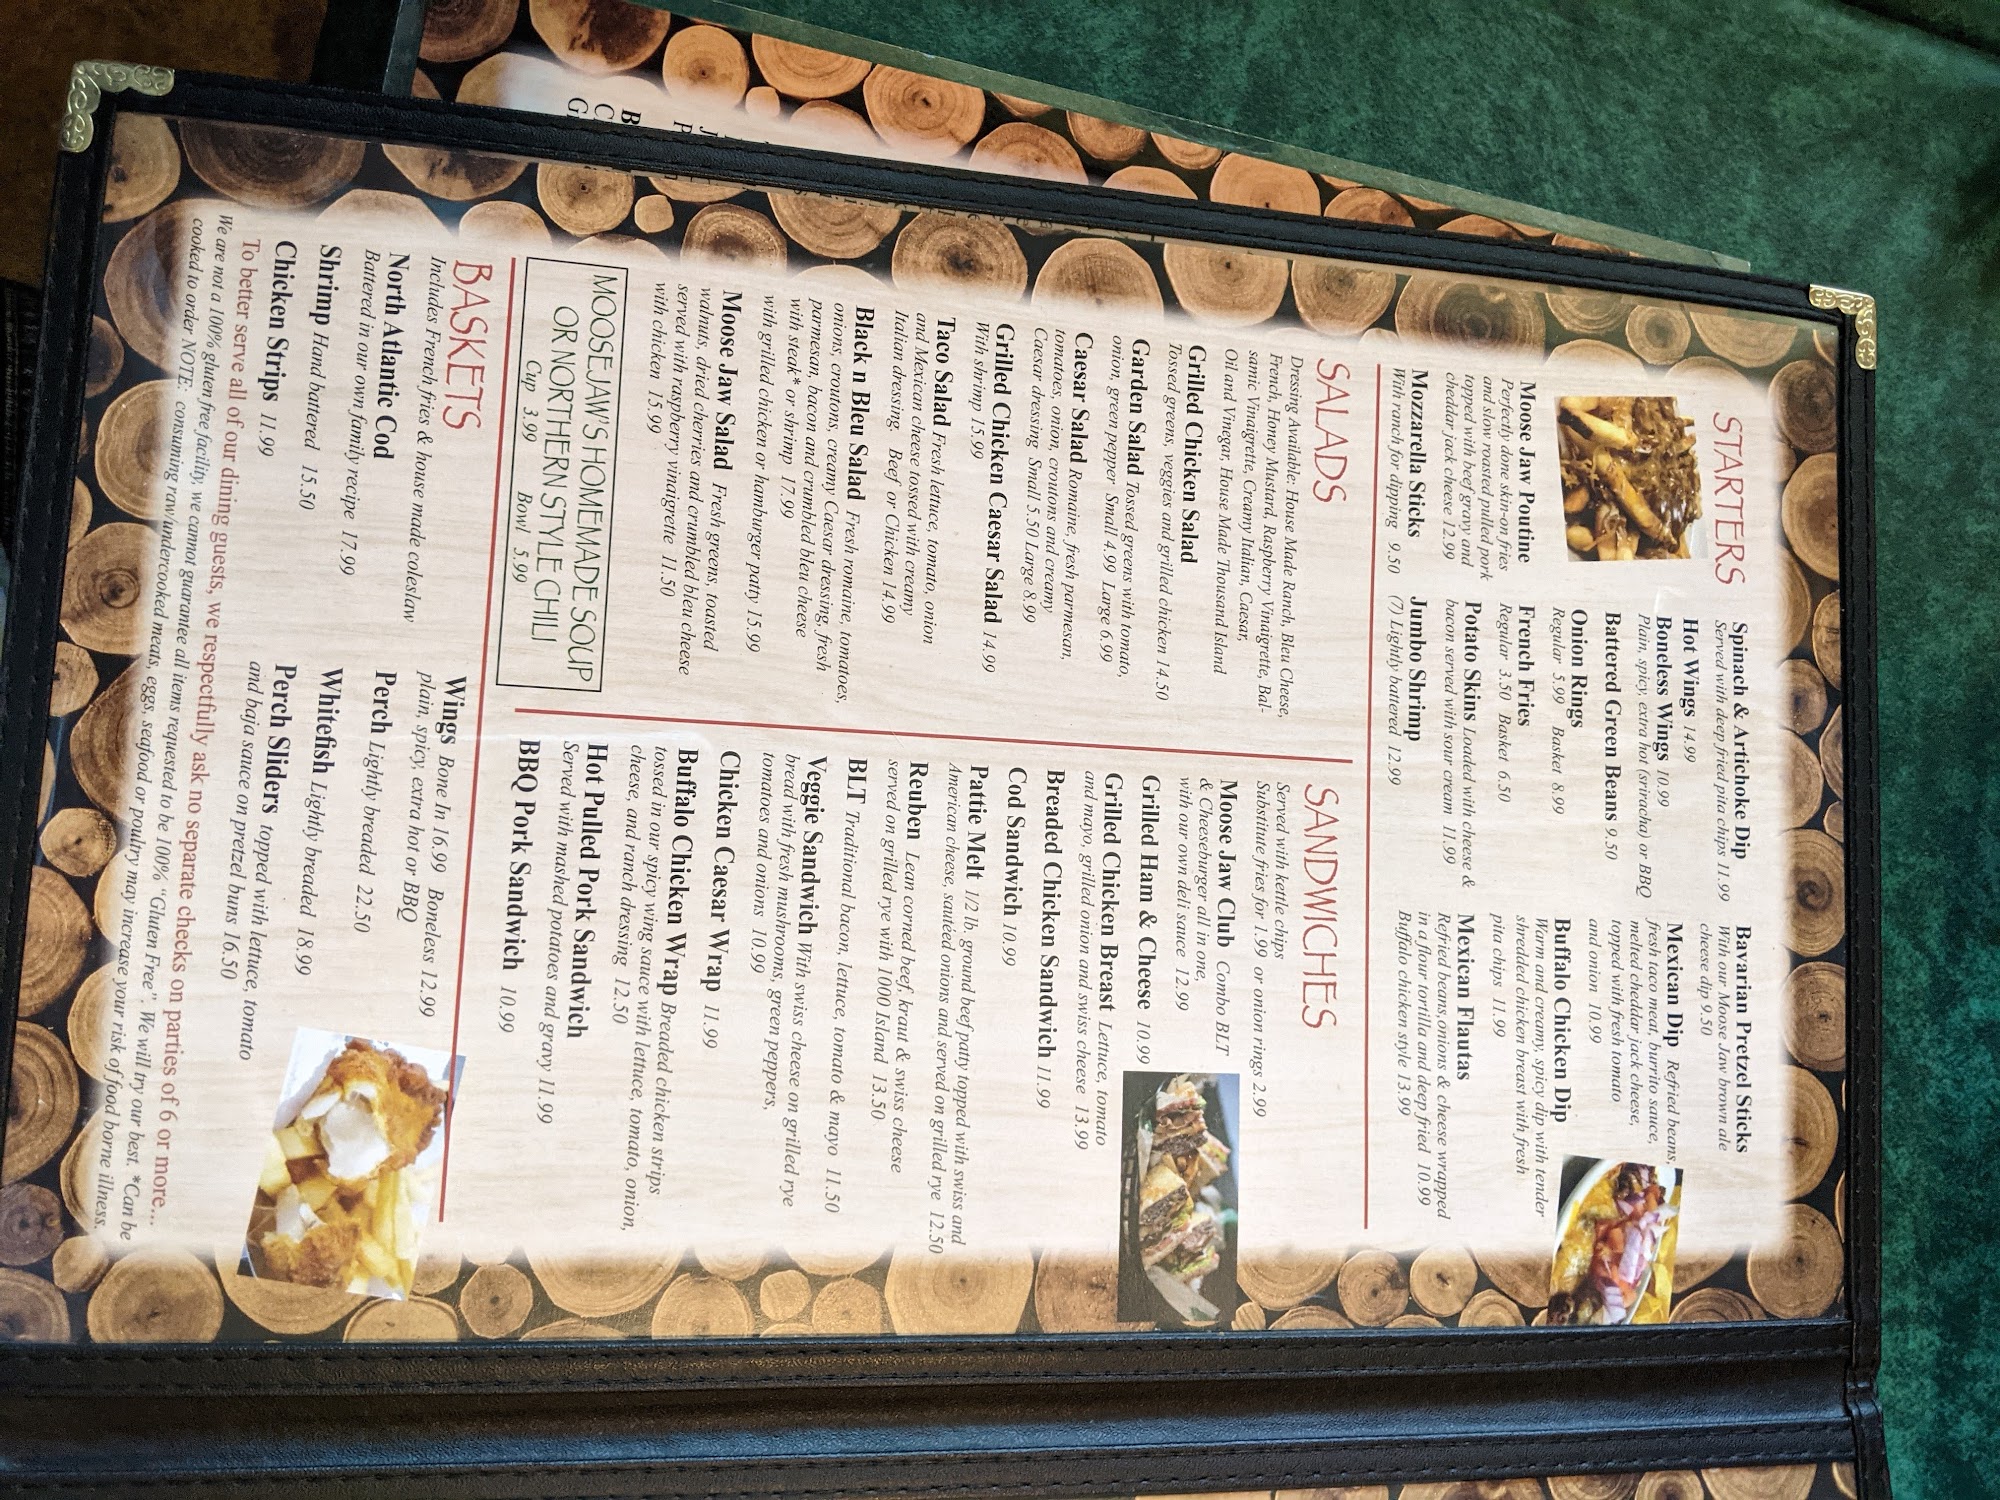 STARTERS
Moose Jaw Poutine
Perfectly done skin-on fries
and slow roasted pulled pork
topped with beef gravy and
cheddar jack cheese 12.99
Mozzarella Sticks
With ranch for dipping 9.50
Spinach & Artichoke Dip
Served with deep fried pita chips 11.99
Hot Wings 14.99
Boneless Wings 10.99
Plain, spicy, extra hot (sriracha) or BBQ
Battered Green Beans 9.50
Onion Rings
Regular 5.99 Basket 8.99
French Fries
Regular 3.50 Basket 6.50
Potato Skins Loaded with cheese &
bacon served with sour cream 11.99
Jumbo Shrimp
(7) Lightly battered 12.99
Bavarian Pretzel Sticks
With our Moose Jaw brown ale
cheese dip 9.50
Mexican Dip Refried beans,
fresh taco meat, burrito sauce,
melted cheddar jack cheese,
topped with fresh tomato
and onion 10.99
Buffalo Chicken Dip
Warm and creamy, spicy dip with tender
shredded chicken breast with fresh
pita chips 11.99
Mexican Flautas
Refried beans, onions & cheese wrapped
in a flour tortilla and deep fried 10.99
Buffalo chicken style 13.99
SALADS
Dressing Available: House Made Ranch, Bleu Cheese,
French, Honey Mustard, Raspberry Vinaigrette, Bal-
samic Vinaigrette, Creamy Italian, Caesar,
Oil and Vinegar, House Made Thousand Island
Grilled Chicken Salad
Tossed greens, veggies and grilled chicken 14.50
Garden Salad Tossed greens with tomato,
onion, green pepper Small 4.99 Large 6.99
Caesar Salad Romaine, fresh parmesan,
tomatoes, onion, croutons and creamy
Caesar dressing Small 5.50 Large 8.99
Grilled Chicken Caesar Salad 14.99
With shrimp 15.99
Taco Salad Fresh lettuce, tomato, onion
and Mexican cheese tossed with creamy
Italian dressing. Beef or Chicken 14.99
Black n Bleu Salad Fresh romaine, tomatoes,
onions, croutons, creamy Caesar dressing, fresh
parmesan, bacon and crumbled bleu cheese
with steak* or shrimp 17.99
with grilled chicken or hamburger patty 15.99
Moose Jaw Salad Fresh greens, toasted
walnuts, dried cherries and crumbled bleu cheese
served with raspberry vinaigrette 11.50
with chicken 15.99
MOOSEJAW'S HOMEMADE SOUP
OR NORTHERN STYLE CHILI
Cup 3.99 Bowl 5.99
SANDWICHES
Served with kettle chips
Substitute fries for 1.99 or onion rings 2.99
Moose Jaw Club Combo BLT
& Cheeseburger all in one,
with our own deli sauce 12.99
Grilled Ham & Cheese 10.99
Grilled Chicken Breast Lettuce, tomato
and mayo, grilled onion and swiss cheese 13.99
Breaded Chicken Sandwich 11.99
Cod Sandwich 10.99
Pattie Melt 1/2 lb. ground beef patty topped with swiss and
American cheese, sautéed onions and served on grilled rye 12.50
Reuben Lean corned beef, kraut & swiss cheese
served on grilled rye with 1000 Island 13.50
BLT Traditional bacon, lettuce, tomato & mayo 11.50
Veggie Sandwich With swiss cheese on grilled rye
bread with fresh mushrooms, green peppers,
tomatoes and onions 10.99
Chicken Caesar Wrap 11.99
Buffalo Chicken Wrap Breaded chicken strips
tossed in our spicy wing sauce with lettuce, tomato, onion,
cheese, and ranch dressing 12.50
Hot Pulled Pork Sandwich
Served with mashed potatoes and gravy 11.99
BBQ Pork Sandwich 10.99
BASKETS
Includes French fries & house made coleslaw
North Atlantic Cod
Battered in our own family recipe 17.99
Shrimp Hand battered 15.50
Chicken Strips 11.99
Wings Bone In 16.99 Boneless 12.99
plain, spicy, extra hot or BBQ
Perch Lightly breaded 22.50
Whitefish Lightly breaded 18.99
Perch Sliders topped with lettuce, tomato
and baja sauce on pretzel buns 16.50
To better serve all of our dining guests, we respectfully ask no separate checks on parties of 6 or more...
We are not a 100% gluten free facility, we cannot guarantee all items requested to be 100% "Gluten Free". We will try our best. *Can be
cooked to order NOTE: consuming raw/undercooked meats, eggs, seafood or poultry may increase your risk of food borne illness.